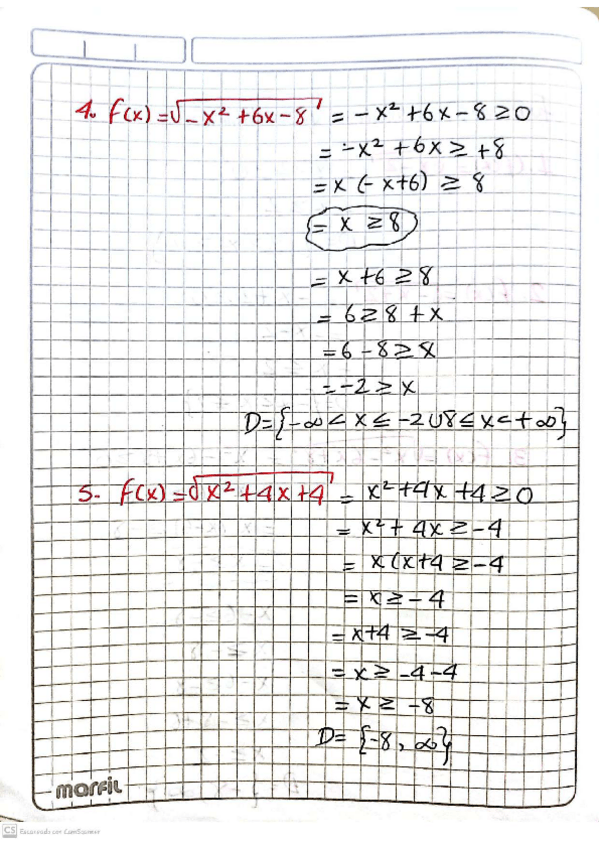 4. f(x) = √-x² + 6x - 8 = -x² + 6x - 8 ≥ 0
= -x² + 6x ≥ +8
= x (-x+6) ≥ 8
= x ≥ 8
= x + 6 ≥ 8
= 6 ≥ 8 + x
= 6 - 8 ≥ x
= -2 ≥ x
D = {-∞ < x ≤ -2 ∪ 8 ≤ x < +∞}
5. f(x) = √x² + 4x + 4 = x² + 4x + 4 ≥ 0
= x² + 4x ≥ -4
= x (x+4 ≥ -4
= x ≥ -4
= x+4 ≥ -4
= x ≥ -4-4
= x ≥ -8
D = {-8, ∞}
marfil
CS Escaneado con CamScanner